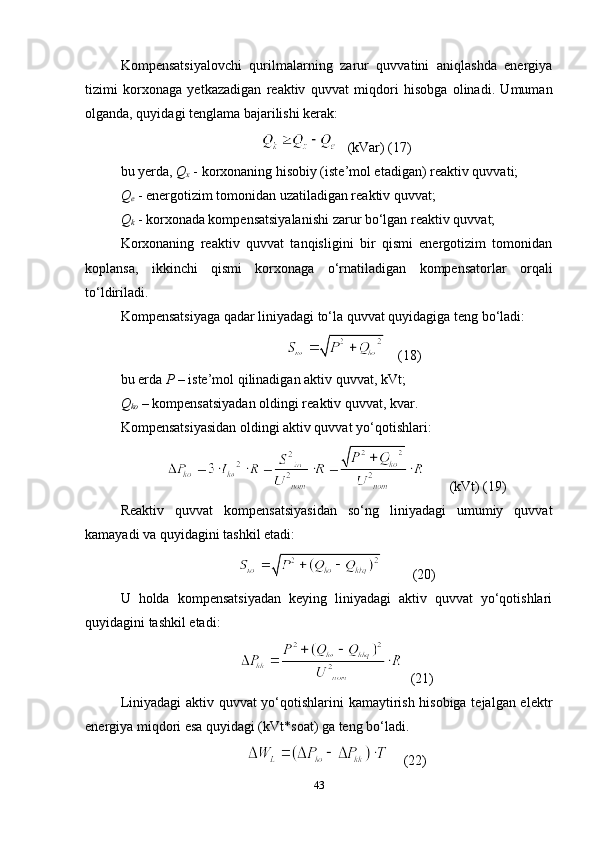 Kompensatsiyalovchi qurilmalarning zarur quvvatini aniqlashda energiya
tizimi korxonaga yetkazadigan reaktiv quvvat miqdori hisobga olinadi. Umuman
olganda, quyidagi tenglama bajarilishi kerak:
Q_k ≥ Q_x - Q_e (kVar) (17)
bu yerda, Q_x - korxonaning hisobiy (iste’mol etadigan) reaktiv quvvati;
Q_e - energotizim tomonidan uzatiladigan reaktiv quvvat;
Q_k - korxonada kompensatsiyalanishi zarur bo‘lgan reaktiv quvvat;
Korxonaning reaktiv quvvat tanqisligini bir qismi energotizim tomonidan
koplansa, ikkinchi qismi korxonaga o‘rnatiladigan kompensatorlar orqali
to‘ldiriladi.
Kompensatsiyaga qadar liniyadagi to‘la quvvat quyidagiga teng bo‘ladi:
S_no = √(P² + Q_ko²) (18)
bu erda P – iste’mol qilinadigan aktiv quvvat, kVt;
Q_ko – kompensatsiyadan oldingi reaktiv quvvat, kvar.
Kompensatsiyasidan oldingi aktiv quvvat yo‘qotishlari:
ΔP_ko = 3 · I_ko² · R = S²_no / U²_nom · R = √(P² + Q_ko²) / U²_nom · R (kVt) (19)
Reaktiv quvvat kompensatsiyasidan so‘ng liniyadagi umumiy quvvat
kamayadi va quyidagini tashkil etadi:
S_no = √(P² + (Q_ko - Q_kkq)²) (20)
U holda kompensatsiyadan keying liniyadagi aktiv quvvat yo‘qotishlari
quyidagini tashkil etadi:
ΔP_kk = P² + (Q_ko - Q_kkq)² / U²_nom · R (21)
Liniyadagi aktiv quvvat yo‘qotishlarini kamaytirish hisobiga tejalgan elektr
energiya miqdori esa quyidagi (kVt*soat) ga teng bo‘ladi.
ΔW_L = (ΔP_ko - ΔP_kk) · T (22)
43